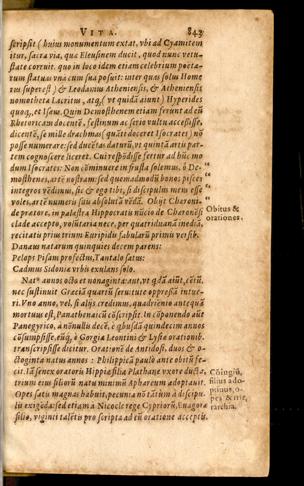 VITA. 843
scripsit (huius monumentum extat, vbi ad Cyamitem
itur, sacra via, quæ Eleusinem ducit, quod nunc vetu-
state corruit. quo in loco idem etiam celebrium poëta-
rum statuas vnà cum sua posuit: inter quas solus Home
rus superest) & Leodamas Atheniensis, & Atheniensis
nomotheta Lacritus, atq; (vt quidā aiunt) Hyperides
quoq;, et Isæus. Quin Demosthenem etiam ferunt ad eū
Rhetoricam docentē, festinum ac serio vultu accessisse,
dicentē, se mille drachmas (quāte doceret Isocrates) nō
posse numerare: sed ducētas daturū, vt quintā artis par-
tem cognoscere liceret. Cui respōdisse fertur ad hūc mo
dum Isocrates: Non cōminuere in frusta solemus, ô De-
mosthenes, artē nostram: sed quemadmodū bonos pisces
integros vēdimus, sic & ego tibi, si discipulus meus esse
voles, artē numeris suis absolutā vēdā. Obijt Charoni-
de prætore, in palæstra Hippocratis nūcio de Charonēsi
clade accepto, voluntaria nece, per quatriduanā inediā,
recitatis prius trium Euripidis fabularū primis versib.
Danaus natarum quinquies decem parens:
Pelops Pisam profectus, Tantalo satus:
Cadmus Sidonia vrbis exulans solo.
Obitus &
orationes.
Natꝰ annos octo et nonaginta: aut, vt qdā aiūt, cētū,
nec sustinuit Græciā quartū seruitute oppressā intue-
ri. Vno anno, vel, si alijs credimus, quadriēnio antequā
mortuus est, Panathenaicū cōscripsit. In cōponendo autē
Panegyrico, à nōnullis decē, è quibusdā quindecim annos
cōsumpsisse, eūq; è Gorgia Leontini & Lysiæ orationib.
transcripsisse dicitur. Orationē de Antidosi, duos & o-
ctoginta natus annos: Philippicā paulò ante obitū fe-
cit. Iā senex oratoris Hippiæ filia Plathane vxore ducta,
trium eius filiorū natu minimū Aphareum adoptauit.
Opes satis magnas habuit, pecunia nō tātum à discipu-
lis exigēda: sed etiam à Nicocle rege Cypriorū, Euagoræ
filio, viginti talētis pro scripta ad eū oratione acceptis.
filius ado-